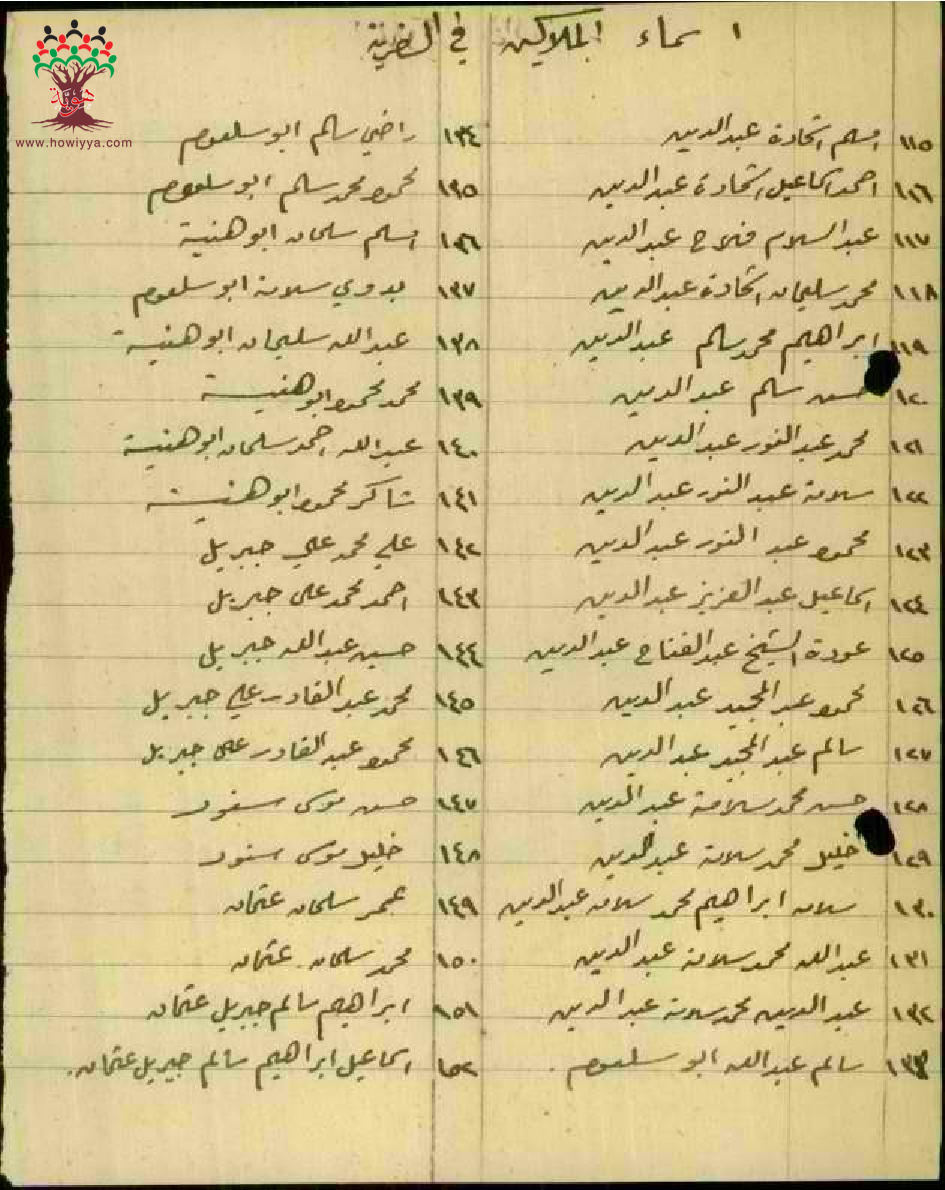 اسماء الملاكين في القرية
هوية
www.howiyya.com
١١٥ اسلم اشحادة عبد الدين
١١٦ احمد اسماعيل اشحادة عبد الدين
١١٧ عبد السلام فلاح عبد الدين
١١٨ محمد سليمان اشحادة عبد الدين
١١٩ ابراهيم محمد سالم عبد الدين
١٢٠ حسن سالم عبد الدين
١٢١ محمد عبد النور عبد الدين
١٢٢ سلامة عبد النور عبد الدين
١٢٣ محمود عبد النور عبد الدين
١٢٤ اسماعيل عبد العزيز عبد الدين
١٢٥ عودة الشيخ عبد الفتاح عبد الدين
١٢٦ محمود عبد المجيد عبد الدين
١٢٧ سالم عبد المجيد عبد الدين
١٢٨ حسن محمد سلامة عبد الدين
١٢٩ خليل محمد سلامة عبد الدين
١٣٠ سلامه ابراهيم محمد سلامه عبد الدين
١٣١ عبد الله محمد سلامة عبد الدين
١٣٢ عبد الدين محمد سلامة عبد الدين
١٣٣ سالم عبد الله ابو سلعوم.
١٣٤ راضي سالم ابو سلعوم
١٣٥ محمود محمد سالم ابو سلعوم
١٣٦ اسلم سلمان ابو هنية
١٣٧ بدوي سلامة ابو سلعوم
١٣٨ عبد الله سليمان ابو هنية
١٣٩ محمد محمود ابو هنية
١٤٠ عبد الله احمد سلمان ابو هنية
١٤١ شاكر محمود ابو هنية
١٤٢ علي محمد علي جبريل
١٤٣ احمد محمد علي جبريل
١٤٤ حسين عبد الله جبريل
١٤٥ محمد عبد القادر علي جبريل
١٤٦ محمود عبد القادر علي جبريل
١٤٧ حسن موسى
١٤٨ خليل موسى
١٤٩ عمر سلمان عثمان
١٥٠ محمد سلمان عثمان
١٥١ ابراهيم سالم جبريل عثمان
١٥٢ اسماعيل ابراهيم سالم جبريل عثمان.